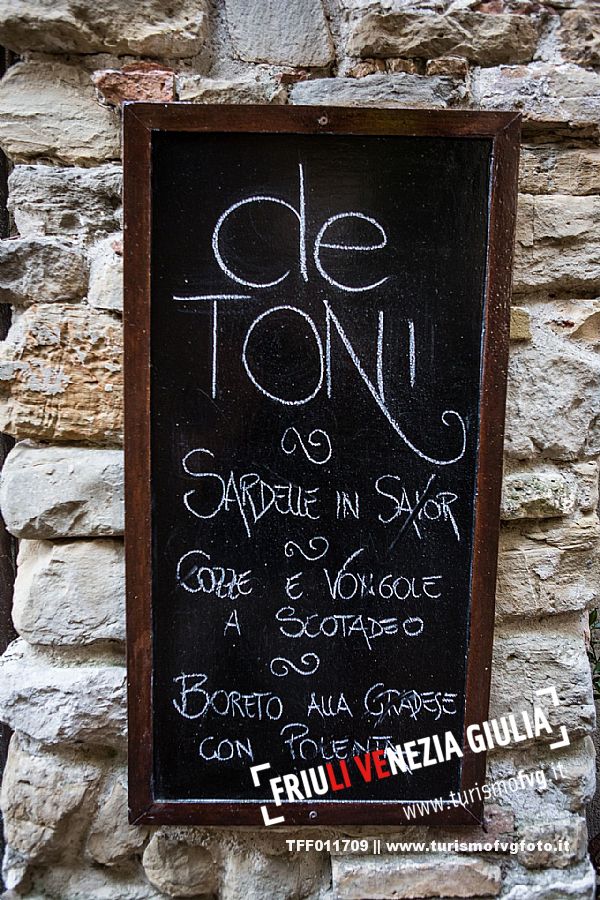 de
TONI
SARDELLE IN SAVOR
COZZE E VONGOLE
A SCOTADEO
BORETO ALLA GRADESE
CON POLENTA
FRIULI VENEZIA GIULIA
www.turismofvg.it
TFF011709 || www.turismofvgfoto.it